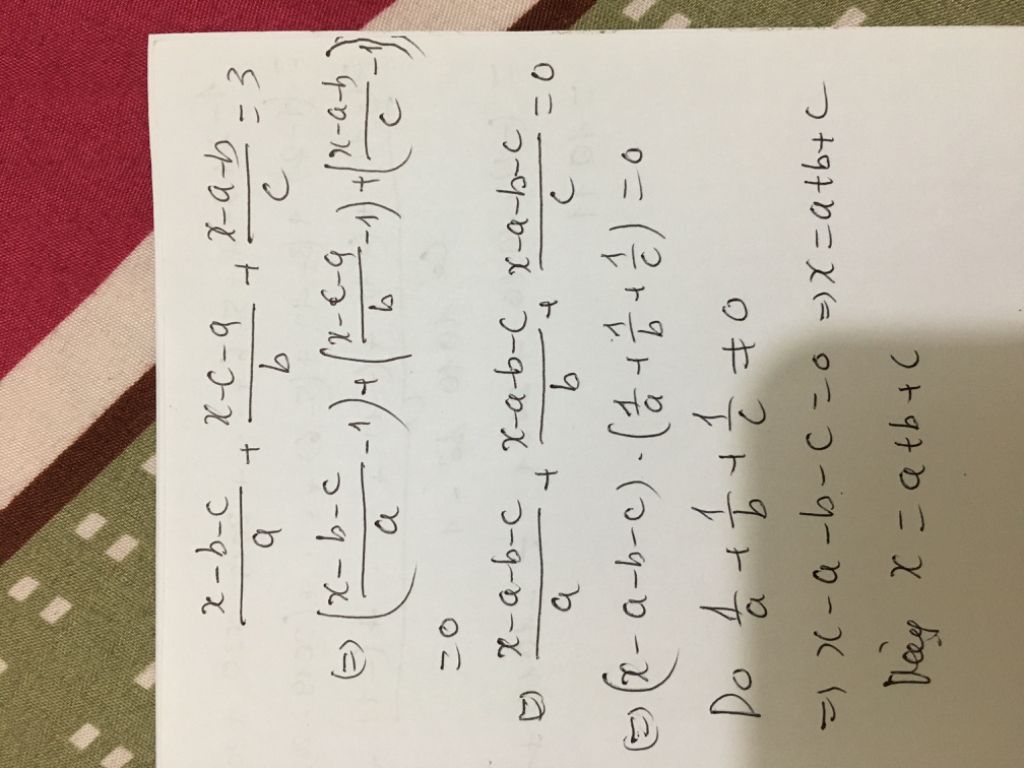 x-b-c/a + x-c-a/b + x-a-b/c = 3
(=) (x-b-c/a - 1) + (x-c-a/b - 1) + (x-a-b/c - 1)
= 0
(=) x-a-b-c/a + x-a-b-c/b + x-a-b-c/c = 0
(=) (x-a-b-c) . (1/a + 1/b + 1/c) = 0
Do 1/a + 1/b + 1/c ≠ 0
=) x-a-b-c = 0 =) x = a+b+c
Vậy x = a+b+c